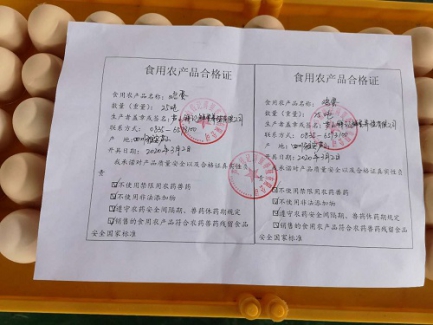 食用农产品合格证
食用农产品名称：鸡蛋
数量（重量）：25吨
生产者盖章或签名：
联系方式：0835-
产 地：四川雅安
开具日期：2020年3月2日
我承诺对产品质量安全以及合格证真实性负
责
☑不使用禁限用农药兽药
☑不使用非法添加物
☑遵守农药安全间隔期、兽药休药期规定
☑销售的食用农产品符合农药兽药残留食品
安全国家标准
食用农产品合格证
食用农产品名称：鸡蛋
数量（重量）：25吨
生产者盖章或签名：
联系方式：0835-
产 地：四川雅安
开具日期：2020年3月2日
我承诺对产品质量安全以及合格证真实性负
责
☑不使用禁限用农药兽药
☑不使用非法添加物
☑遵守农药安全间隔期、兽药休药期规定
☑销售的食用农产品符合农药兽药残留食品
安全国家标准